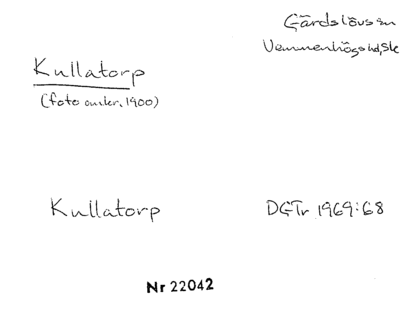 Gärdslövs sn
Vemmenhögs hd, Sk
Kullatorp
(foto omkr. 1900)
Kullatorp
DGTr 1969:68
Nr 22042